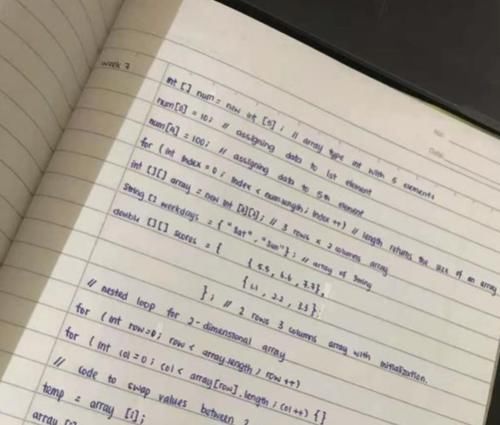 week 7
No:
Date:
int [] num = new int [5]; // array type int with 5 elements
num[0] = 10; // assigning data to 1st element
num[4] = 100; // assigning data to 5th element
for (int index = 0; index < num.length; index ++) // length returns the size of an array
int [][] array = new int [3][2]; // 3 rows x 2 columns array
string [] weekdays = {"sat", "sun"}; // array of string
double [][] scores = { {5.5, 6.6, 7.7},
{1.1, 2.2, 3.3}
}; // 2 rows 3 columns array with initialization.
// nested loop for 2-dimensional array
for (int row=0; row < array.length; row ++)
for (int col = 0; col < array[row].length; col ++) {}
// code to swap values between 2
temp = array [i];
array